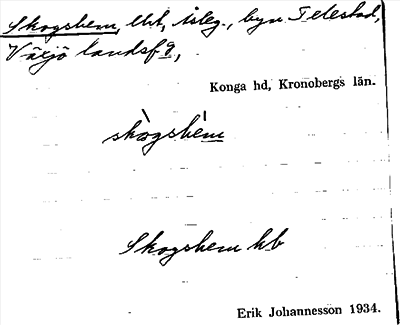 Skogshem, lht, isleg., byn Telestad,
Växjö landsfg,
Konga hd, Kronobergs län.
skògshém
Skogshem hb
Erik Johannesson 1934.